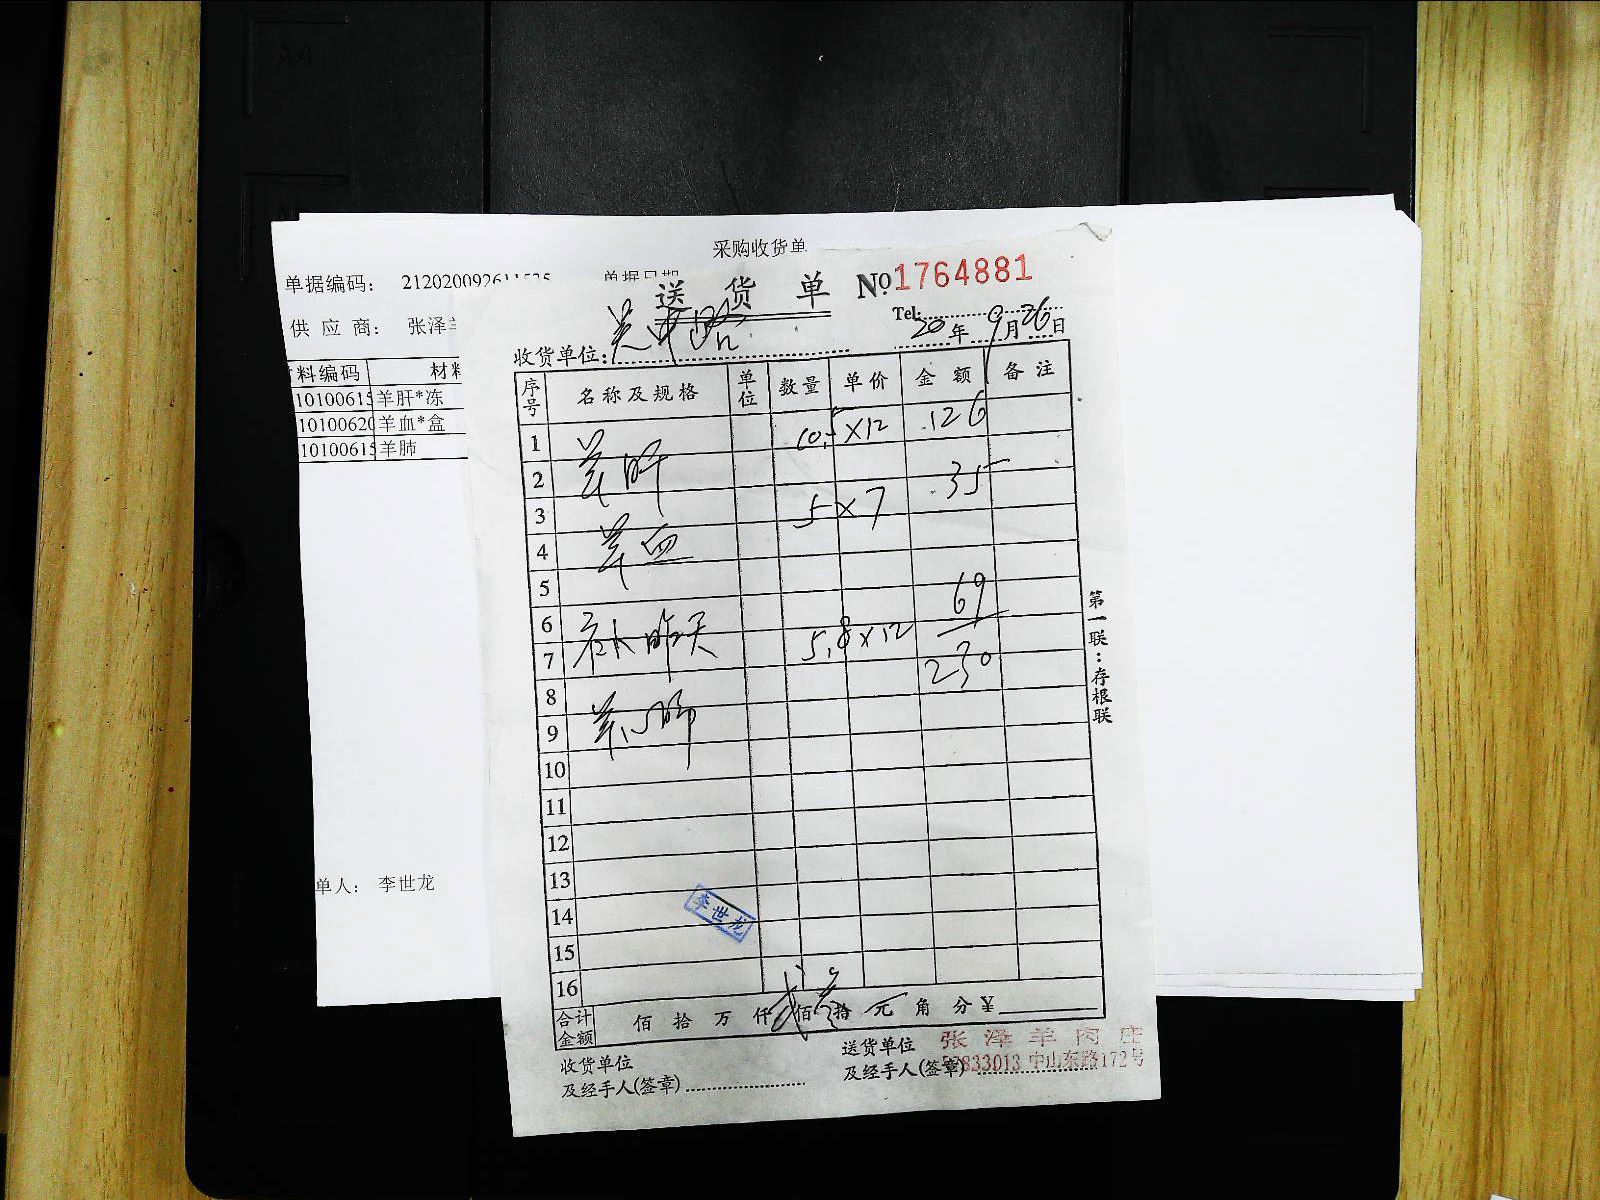 采购收货单
单据编码： 212020092611525 单据日期
供 应 商： 张泽羊
料编码 材料
10100615 羊肝*冻
10100620 羊血*盒
10100615 羊肺
单人： 李世龙
送 货 单 №1764881
Tel:
20年9月26日
收货单位:
序号 名称及规格 单位 数量 单价 金额 备注
1 10.5×12 126
2 羊肝 35
3 5×7
4 羊血
5
6 补昨天 69
7 5.8×12
8 230
9 羊肺
10
11
12
13
14
15
16
李世龙
合计金额 佰 拾 万 仟 贰 佰 叁 拾 元 角 分 ¥
收货单位
及经手人(签章)
送货单位 张泽羊肉庄
及经手人(签章) 57833013 中山东路172号
第一联：存根联